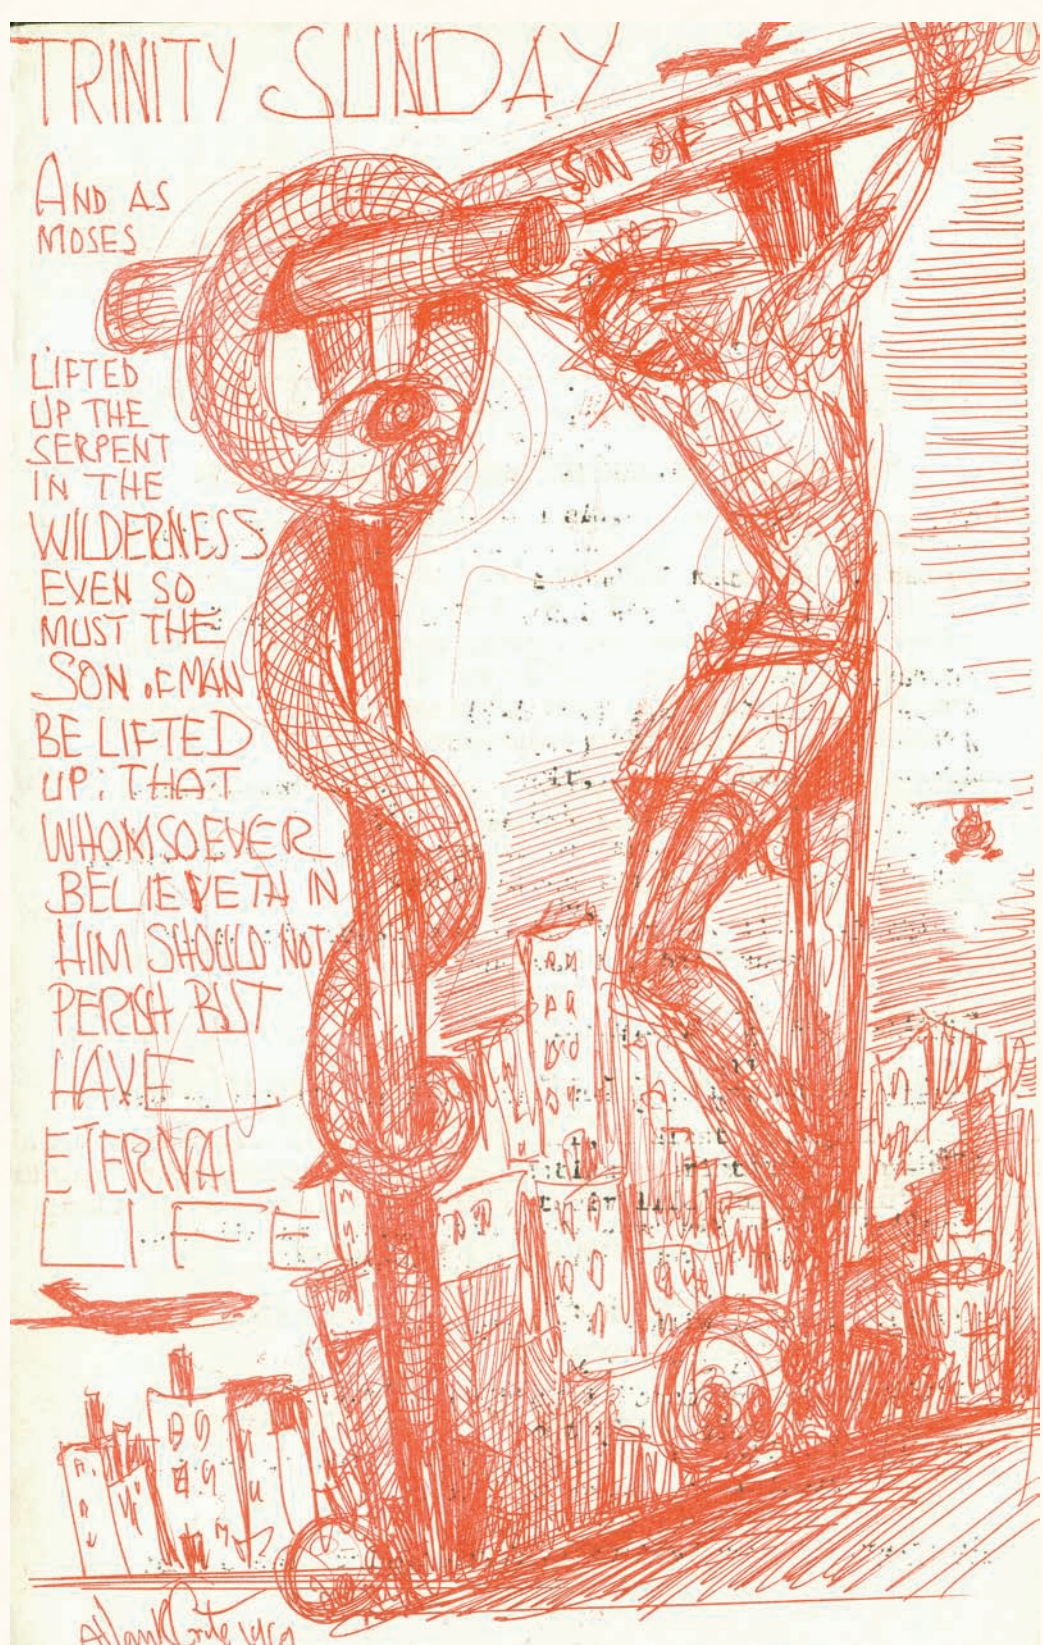 TRINITY SUNDAY
SON OF MAN
AND AS
MOSES
LIFTED
UP THE
SERPENT
IN THE
WILDERNESS
EVEN SO
MUST THE
SON OF MAN
BE LIFTED
UP: THAT
WHOMSOEVER
BELIEVETH IN
HIM SHOULD NOT
PERISH BUT
HAVE
ETERNAL
LIFE
it,